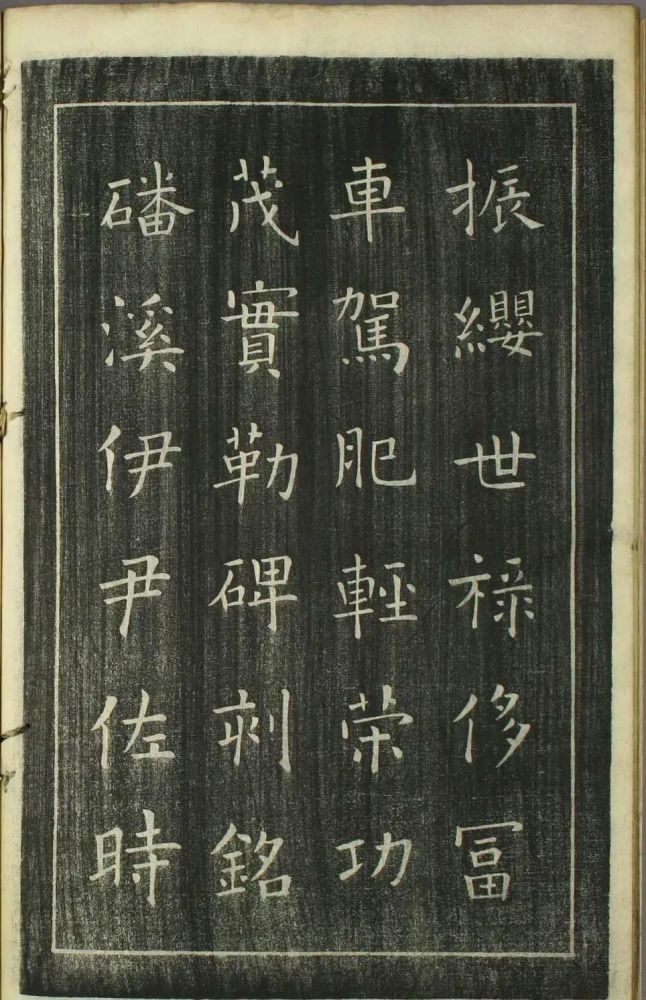 振纓世禄侈冨
車駕肥輕荣功
茂實勒碑刺銘
磻溪伊尹佐時